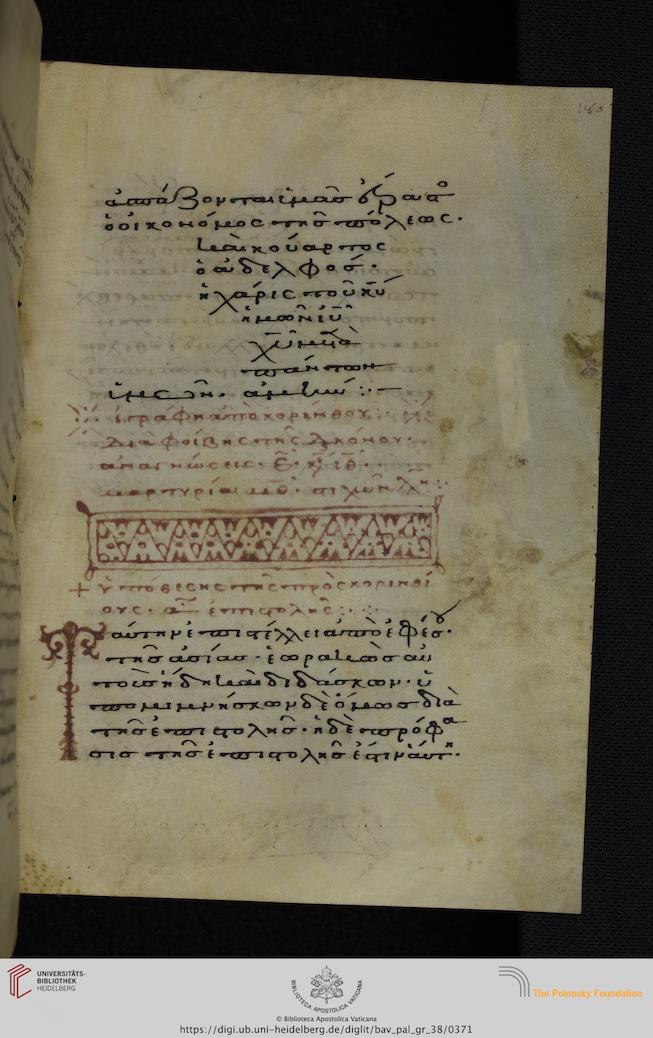 160
ἀσπάζονται ὑμᾶς ἔραστο
ὁ οἰκονόμος τῆς πόλεως.
καὶ κούαρτος
ὁ ἀδελφός.
ἡ χάρις τοῦ κυ
ἡμῶν ιυ
χυ μετὰ
πάντων
ὑμῶν. ἀμήν :—
ἐγράφη ἀπὸ κορίνθου
διὰ φοίβης τῆς διακόνου.
ἀναγνώσεις. ε.
μαρτυρίαι μθ. στιχ
+ ὑπόθεσης τῆς πρὸς κορινθί
ους. α ἐπιστολῆς :
Ταύτην ἐπιστέλλει ἀπὸ ἐφέσου.
τῆς ἀσίας. ἑωρακὼς αὐ
τοὺς ἤδη καὶ διδάσκων. ὑ
πομιμνήσκων δὲ ὅμως διὰ
τῆς ἐπιστολῆς. ἡ δὲ πρόφα
σις τῆς ἐπιστολῆς ἐστὶν αὕτη.
UNIVERSITÄTS-
BIBLIOTHEK
HEIDELBERG
BIBLIOTECA APOSTOLICA VATICANA
The Polonsky Foundation
© Biblioteca Apostolica Vaticana
https://digi.ub.uni-heidelberg.de/diglit/bav_pal_gr_38/0371